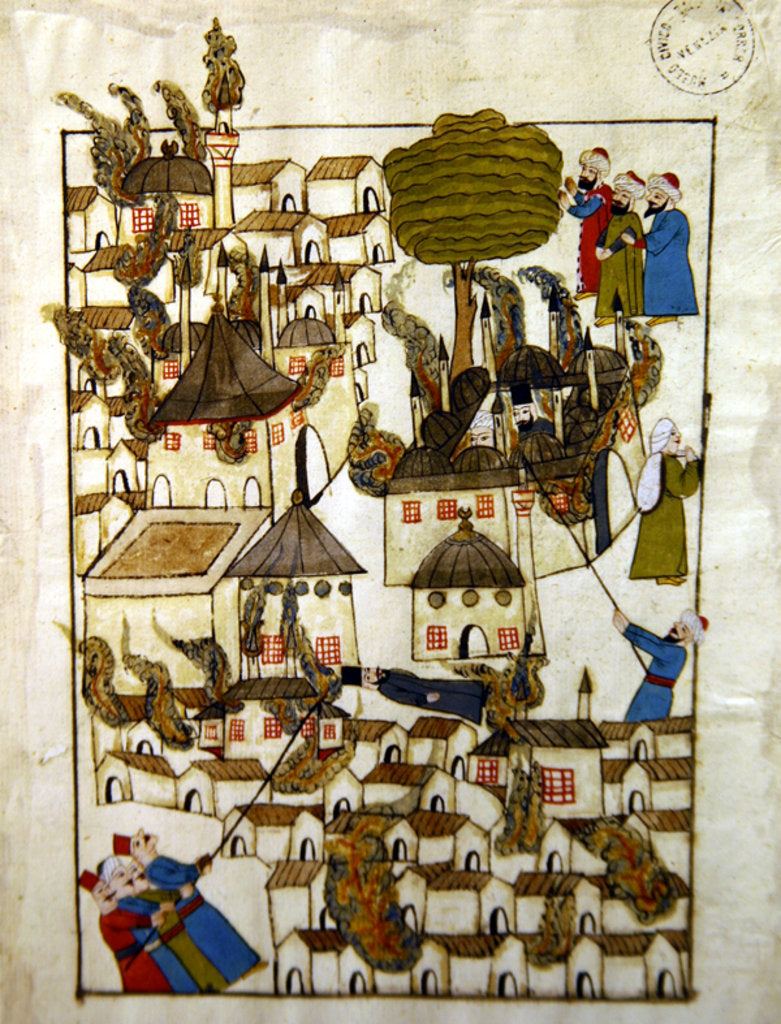 MUSEO CIVICO CORRER
VENEZIA